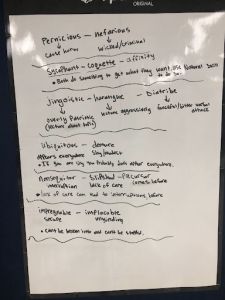 ORIGINAL
Pernicious – nefarious
cause harm wicked/criminal
Sycophant – coquette – affinity
• Both do something to get what they want, use natural
to do so.
Jingoistic – harangue – Diatribe
overly Patriotic lecture aggressively forceful/bitter verbal attack
(lecture about
Ubiquitous – demure
Appears everywhere shy/modest
• If you are shy you probably don't appear everywhere.
Nonsequitor – slipshod – precursor
interruption lack of care comes before
• lack of care can lead to interruptions before
impregnable – implacable
secure unyielding
• Can't be broken into and can't be